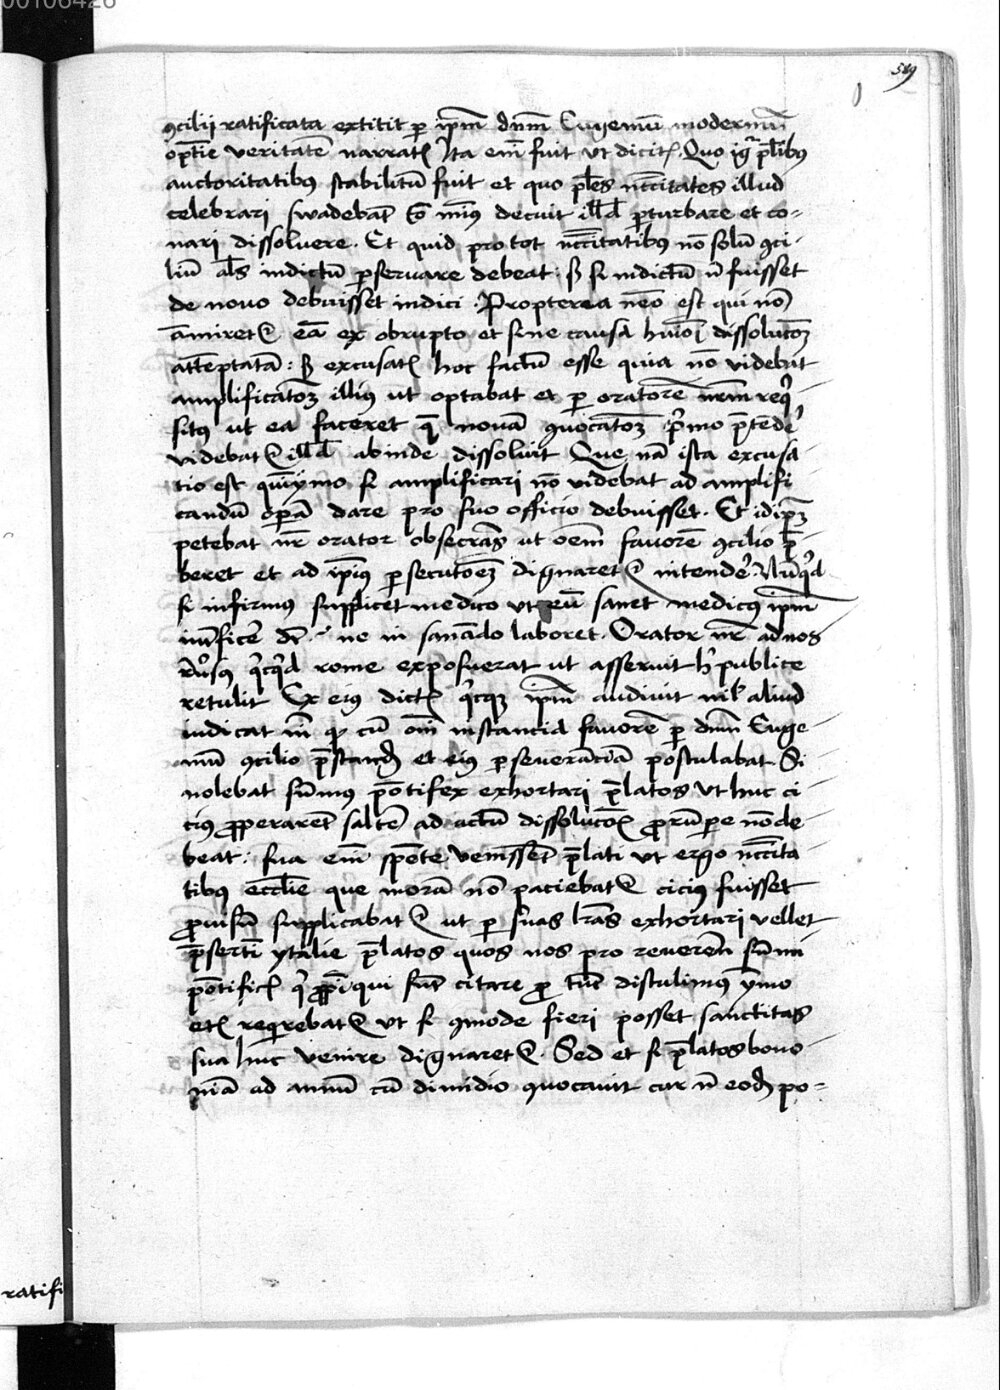 00106426
519
ꝯcilij ratificata extitit ꝑ ip̄m dn̄m Eugeniū modernū
op̄tie veritatē narrat᷒ Ita em̄ fuit ut dicit᷒. Quo igʳ pl̄ibus
auctoritatibus stabilitū fuit et quo pl̄es nc̄citates illud
celebrari swadebāt eo min᷒ decuit ill̄d ꝑturbare et co-
nari dissoluere. Et quid pro tot nc̄citatibus nō solū ꝯci-
liū al̄s indictū ꝑseruare debeat: sꝫ si indictū n̄ fuisset
de nouo debuisset indici. Propterea nēo est qui nō
am̄iretᷣ eā ex obrupto et sine causa huiōi dissolucōꝫ
attēptatā: sꝫ excusat᷒ hoc factū esse quia nō videbāt
amplificacōꝫ illius ut optabat et ꝑ oratorē nr̄m reqⁱ
situs ut ea faceret que nouā ꝯuocacōꝫ pⁱmo p̄tēderᵉ
videbatᷣ ill̄d abinde dissoluit Que nā ista excusa
tio est qūiymo si amplificari nō videbat ad amplifi
candū oꝑā dare pro suo officio debuisset. Et idip̄ꝫ
petebat nr̄ orator obsecrās ut oēm fauorē ꝯcilio p̄
beret et ad ip̄ius ꝑsecutōeꝫ dignaretᷣ intenderᵉ. Nūqⁱd
si infirmus supplicet medico ut eū sanet medicus ip̄m
int̄ficerᵉ dꝫ ne in sanādo laboret. Orator nr̄ ad nos
rūsus qⁱcqⁱd rome exposuerat ut asseruit hⁱ publice
retulit Ex eius dict᷒ qⁱcūqꝫ ip̄m audiuit nil aliud
iudicat nⁱ qꝫ cū oī instancia fauorē ꝑ dn̄m Euge
niū ꝯcilio p̄standū et eius ꝑseuerāciā postulabat Si
nolebat sūmus pōtifex exhortari p̄latos ut huc ci
cius ꝓperarēt saltē ad actū dissolucōis ꝓrūpere nō de
beat: sua em̄ spōte venissēt p̄lati ut ergo nc̄cita
tibus ecc̄lie que morā nō paciebatᷣ cicius fuisset
ꝓuisū supplicabatᷣ ut ꝑ suas lr̄as exhortari vellet
p̄sertī ytalie p̄latos quos nos pro reuerēn sūmi
pōtific᷒ qⁱ ꝓpīqui sūt citare ꝓ tūc distulimus ymo
et᷒ reqⁱrebatᷣ ut si ꝯmode fieri posset sanctitas
sua huc venire dignaretᷣ. Sed et si p̄latos bono-
niā ad annū cū dimidio ꝯuocauit cur n̄ eodē po-
ratifi